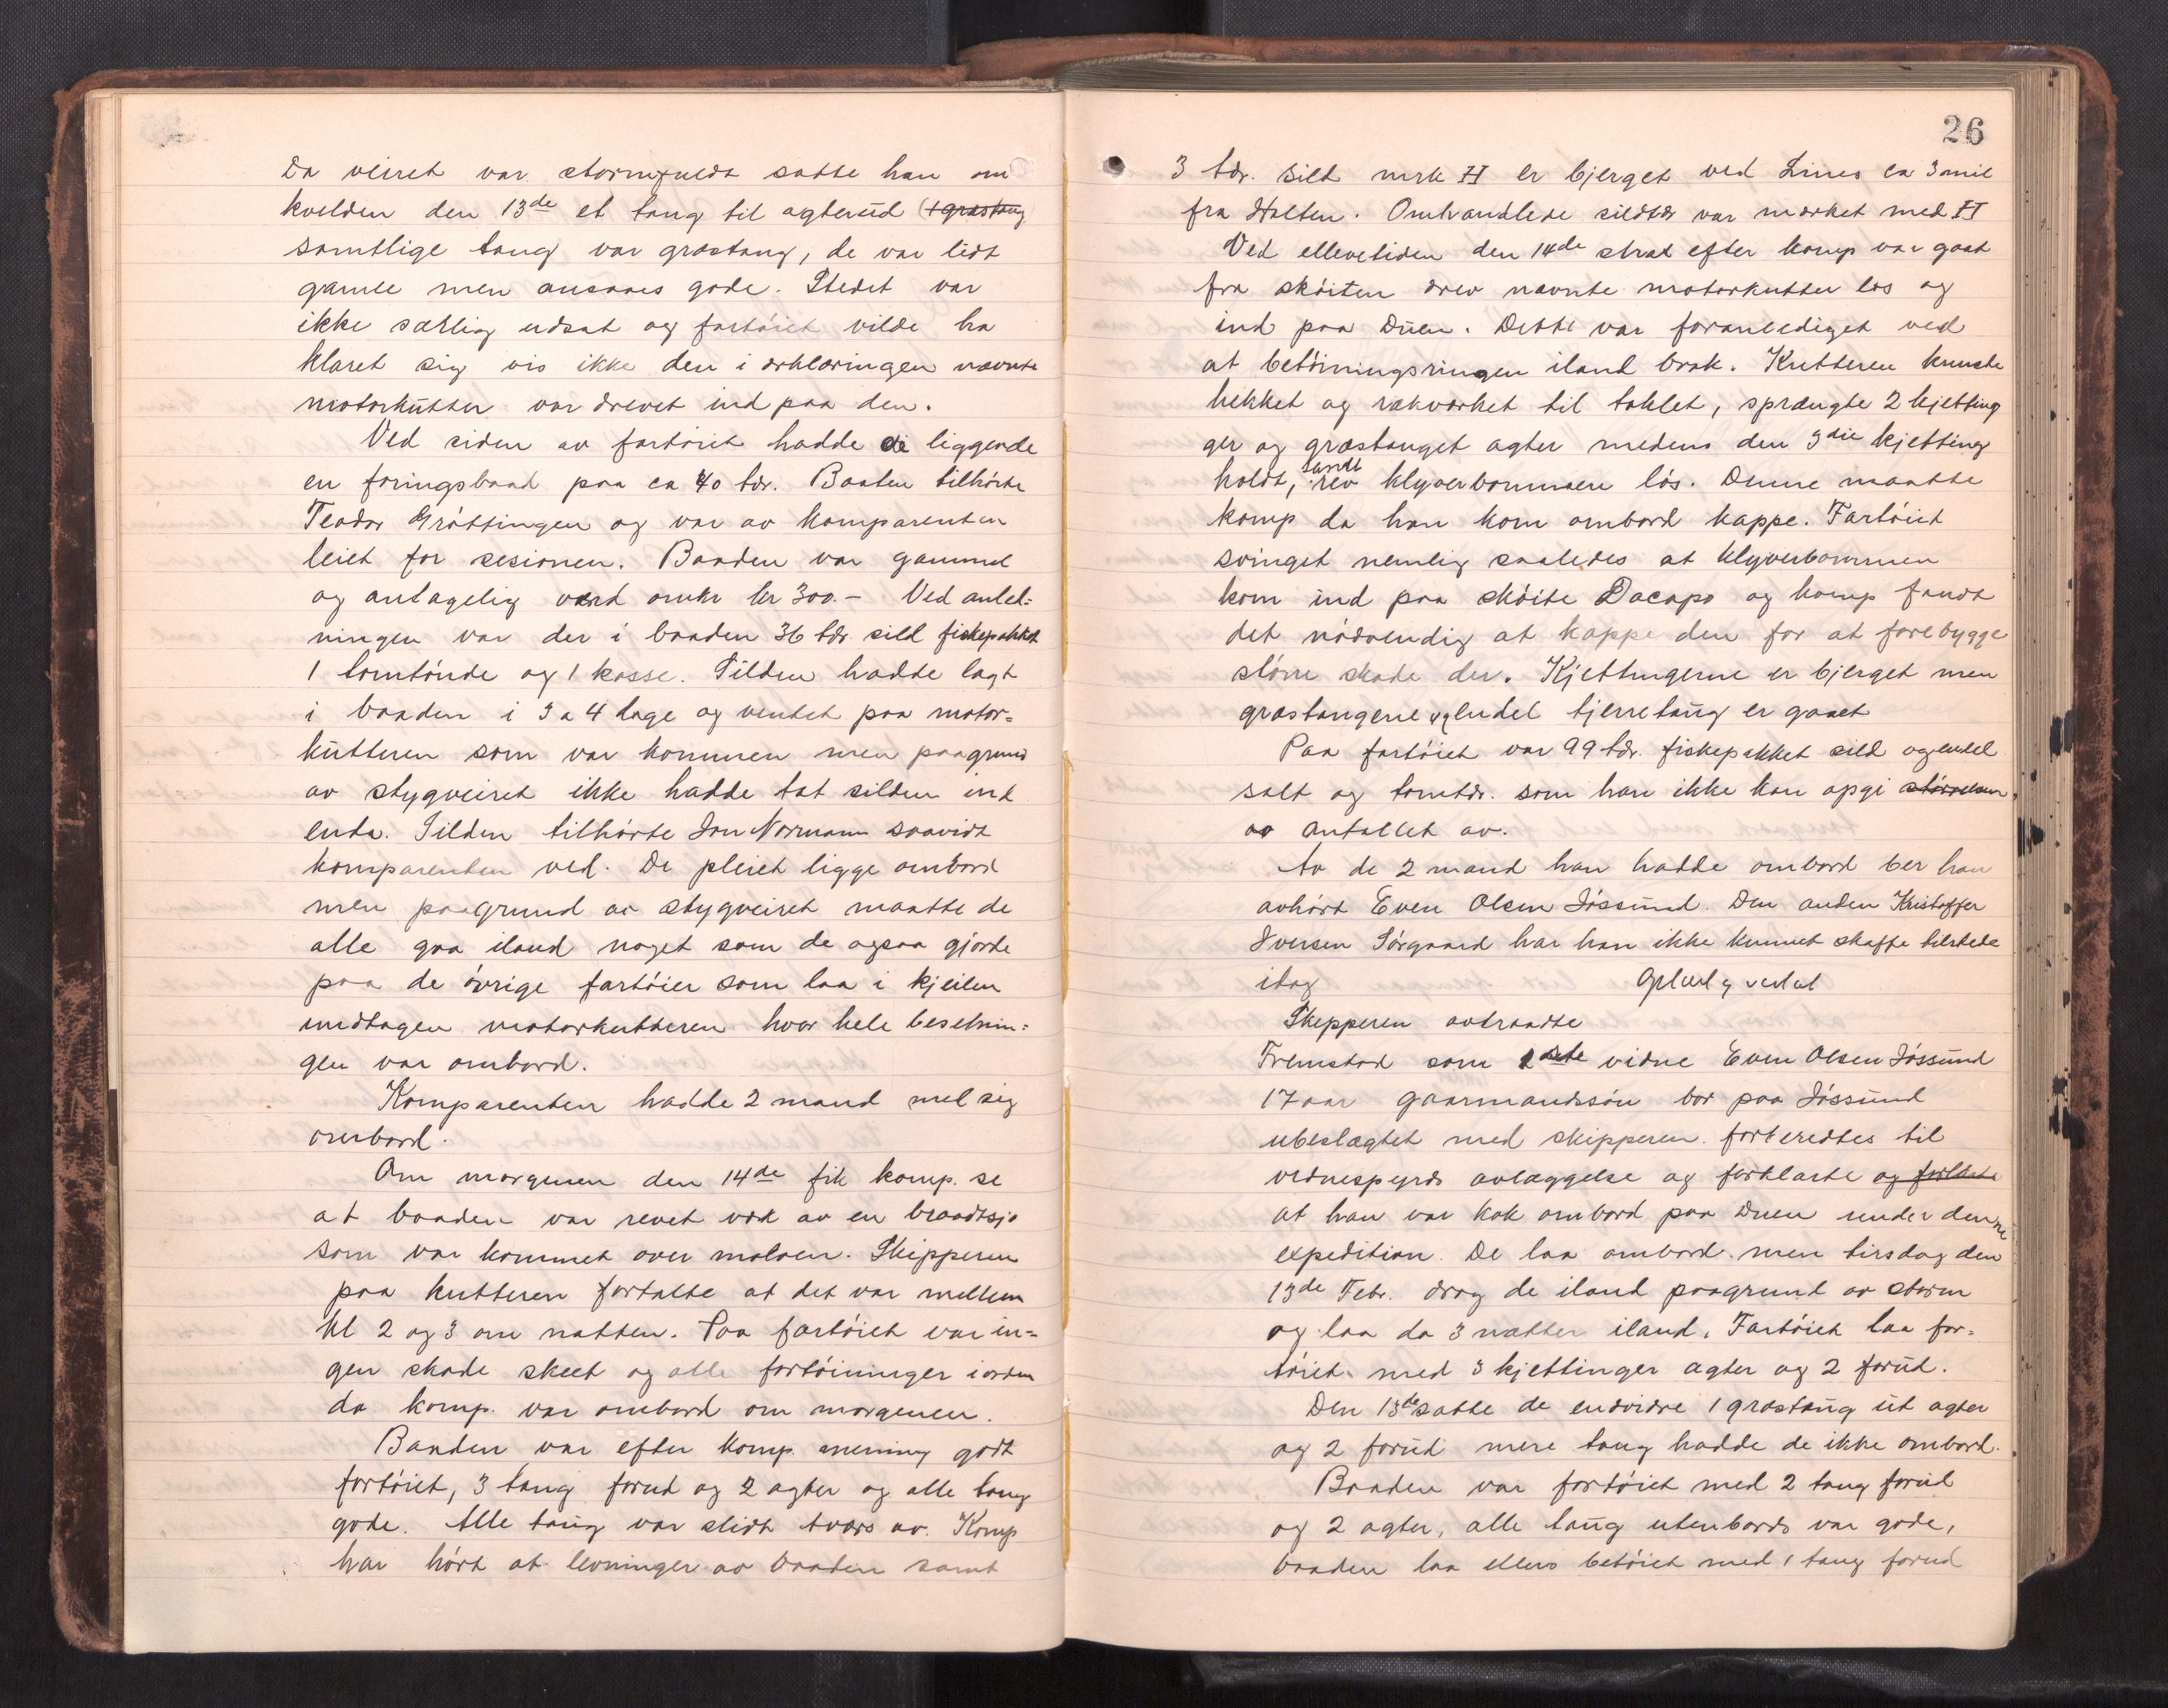 Da veiret var stormfuldt satte han om
kvelden den 13de et taug til agterud (1 græstaug
samtlige taug var græstaug, de var lidt
gamle men ansaaes gode. Stedet var
ikke særlig udsat og fartöiet vilde ha
klaret sig vis ikke den i erklæringen nævnte
motorkutter var drevet ind paa den.
Ved siden av fartöiet hadde de liggende
en föringsbaad paa ca 40 tdr. Baaten tilhörte
Teodor Gröttingen og var av komparenten
leiet for sesionen. Baaden var gammel
og antagelig værd omkr kr 300.- Ved anled=
ningen var der i baaden 36 tdr. sild fiskepakket
1 tomtönde og 1 kasse. Silden hadde lagt
i baaden i 3 a 4 dage og ventet paa motor=
kutteren som var kommen men paagrund
av stygveiret ikke hadde tat silden ind
enda. Silden tilhörte Jon Normann saavidt
komparenten ved. De pleiet ligge ombord
men paagrund av stygveiret maatte de
alle gaa iland noget som de ogsaa gjorde
paa de övrige fartöier som laa i kjeilen
undtagen motorkutteren hvor hele besetnin=
gen var ombord.
Komparenten hadde 2 mand med sig
ombord.
Om morgenen den 14de fik komp. se
at baaden var revet væk av en braadtsjö
som var kommet over moloen. Skipperen
paa kutteren fortalte at det var mellem
kl 2 og 3 om natten. Paa fartöiet var in=
gen skade skeet og alle fortöininger iorden
da komp. var ombord om morgenen.
Baaden var efter komp. mening godt
fortöiet, 3 taug forud og 2 agter og alle taug
gode. Alle taug var slidt tværs av. Komp
har hört at levninger av baaden samt
26
3 tdr. sild mrk H er bjerget ved Lines ca 3 mil
fra Halten. Omhandlede sildtdr var mærket med H
Ved ellevetiden den 14de strax efter komp var gaat
fra sköiten drev nævnte motorkutter los og
ind paa Duen. Dette var foranlediget ved
at betöiningsringen iland brak. Kutteren knuste
hekket og rækværket til taklet, sprængte 2 kjetting
ger og græstauget agter medens den 3die kjetting
holdt, samt rev klyverbommen lös. Denne maatte
komp da han kom ombord kappe. Fartöiet
svinget nemlig saaledes at klyverbommen
kom ind paa sköite Dacapo og komp fandt
det nödvendig at kappe den for at forebygge
större skade der. Kjettingerne er bjerget men
græstaugene og endel tjerretaug er gaaet
Paa fartöiet var 99 tdr. fiskepakket sild og endel
salt og tomtdr. som han ikke kan opgi störrelsen
av antallet av.
Av de 2 mand han hadde ombord ber han
avhört Even Olsen Jössund. Den anden Kristoffer
Iversen Sörgaard har han ikke kunnet skaffe tilstede
idag Oplæst og vedtat
Skipperen avtraadte
Fremstod som 1ste vidne Even Olsen Jössund
17 aar gaarmandssön bor paa Jössund
ubeslægtet med skipperen. forberedtes til
vidnespyrds avlæggelse og forklarte og forklarte
at han var kok ombord paa Duen under denne
expedition. De laa ombord men tirsdag den
13de Febr. drog de iland paagrund av storm
og laa da 3 nætter iland. Fartöiet laa for=
töiet med 3 kjettinger agter og 2 forud.
Den 13de satte de endvidre 1 græstaug ut agter
og 2 forud mere taug hadde de ikke ombord.
Baaden var fortöiet med 2 taug forud
og 2 agter, alle taug utenbords var gode,
baaden laa ellers betöiet med 1 taug forud